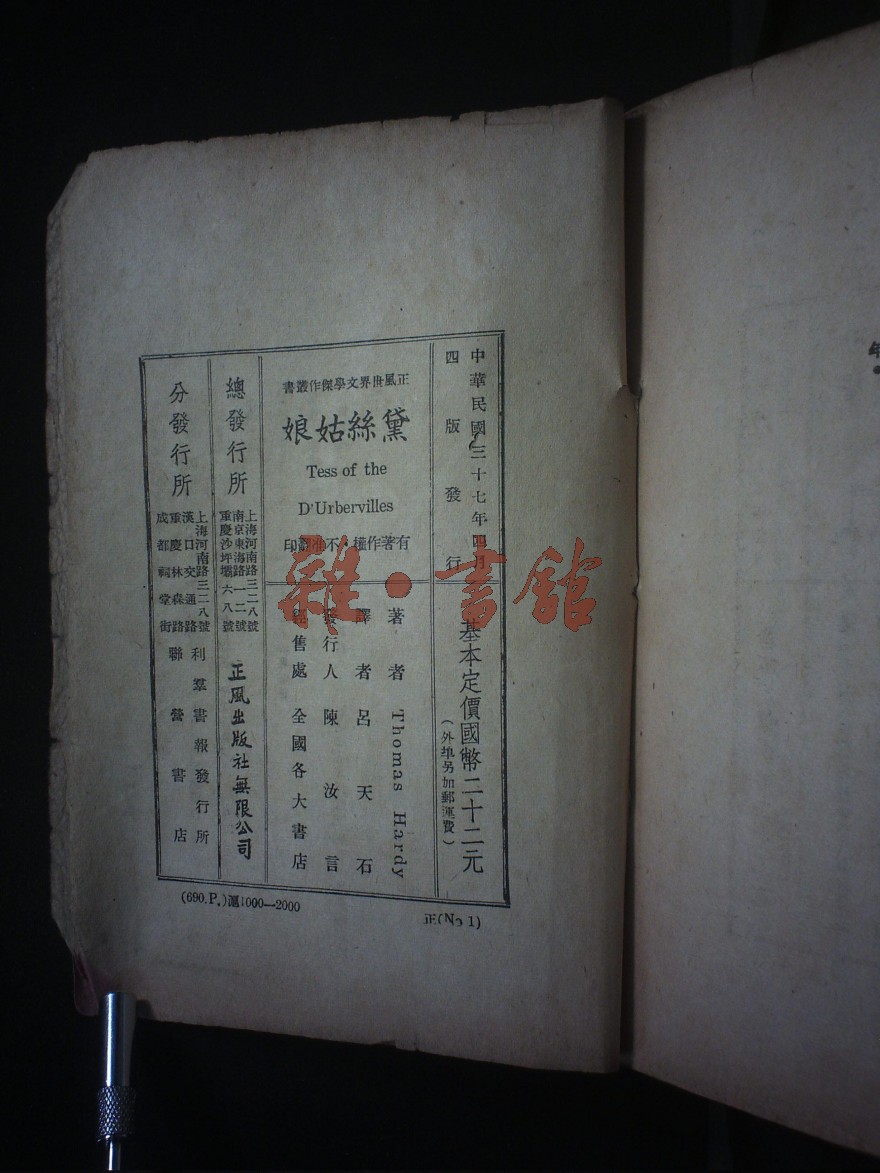 中華民國三十七年四月
四版發行
基本定價國幣二十二元
(外埠另加郵運費)
正風世界文學傑作叢書
黛絲姑娘
Tess of the
D'Urbervilles
有著作權·不准翻印
著者 Thomas Hardy
譯者 呂天石
發行人 陳汝言
經售處 全國各大書店
總發行所
上海河南路三二八號
南京東海路一二號
重慶沙坪壩六八號
正風出版社無限公司
分發行所
上海河南路三二八號
漢口交通路
重慶林森路
成都祠堂街
利羣書報發行所
聯營書店
(690.P.)滬1000—2000
正(No 1)
雜·書館